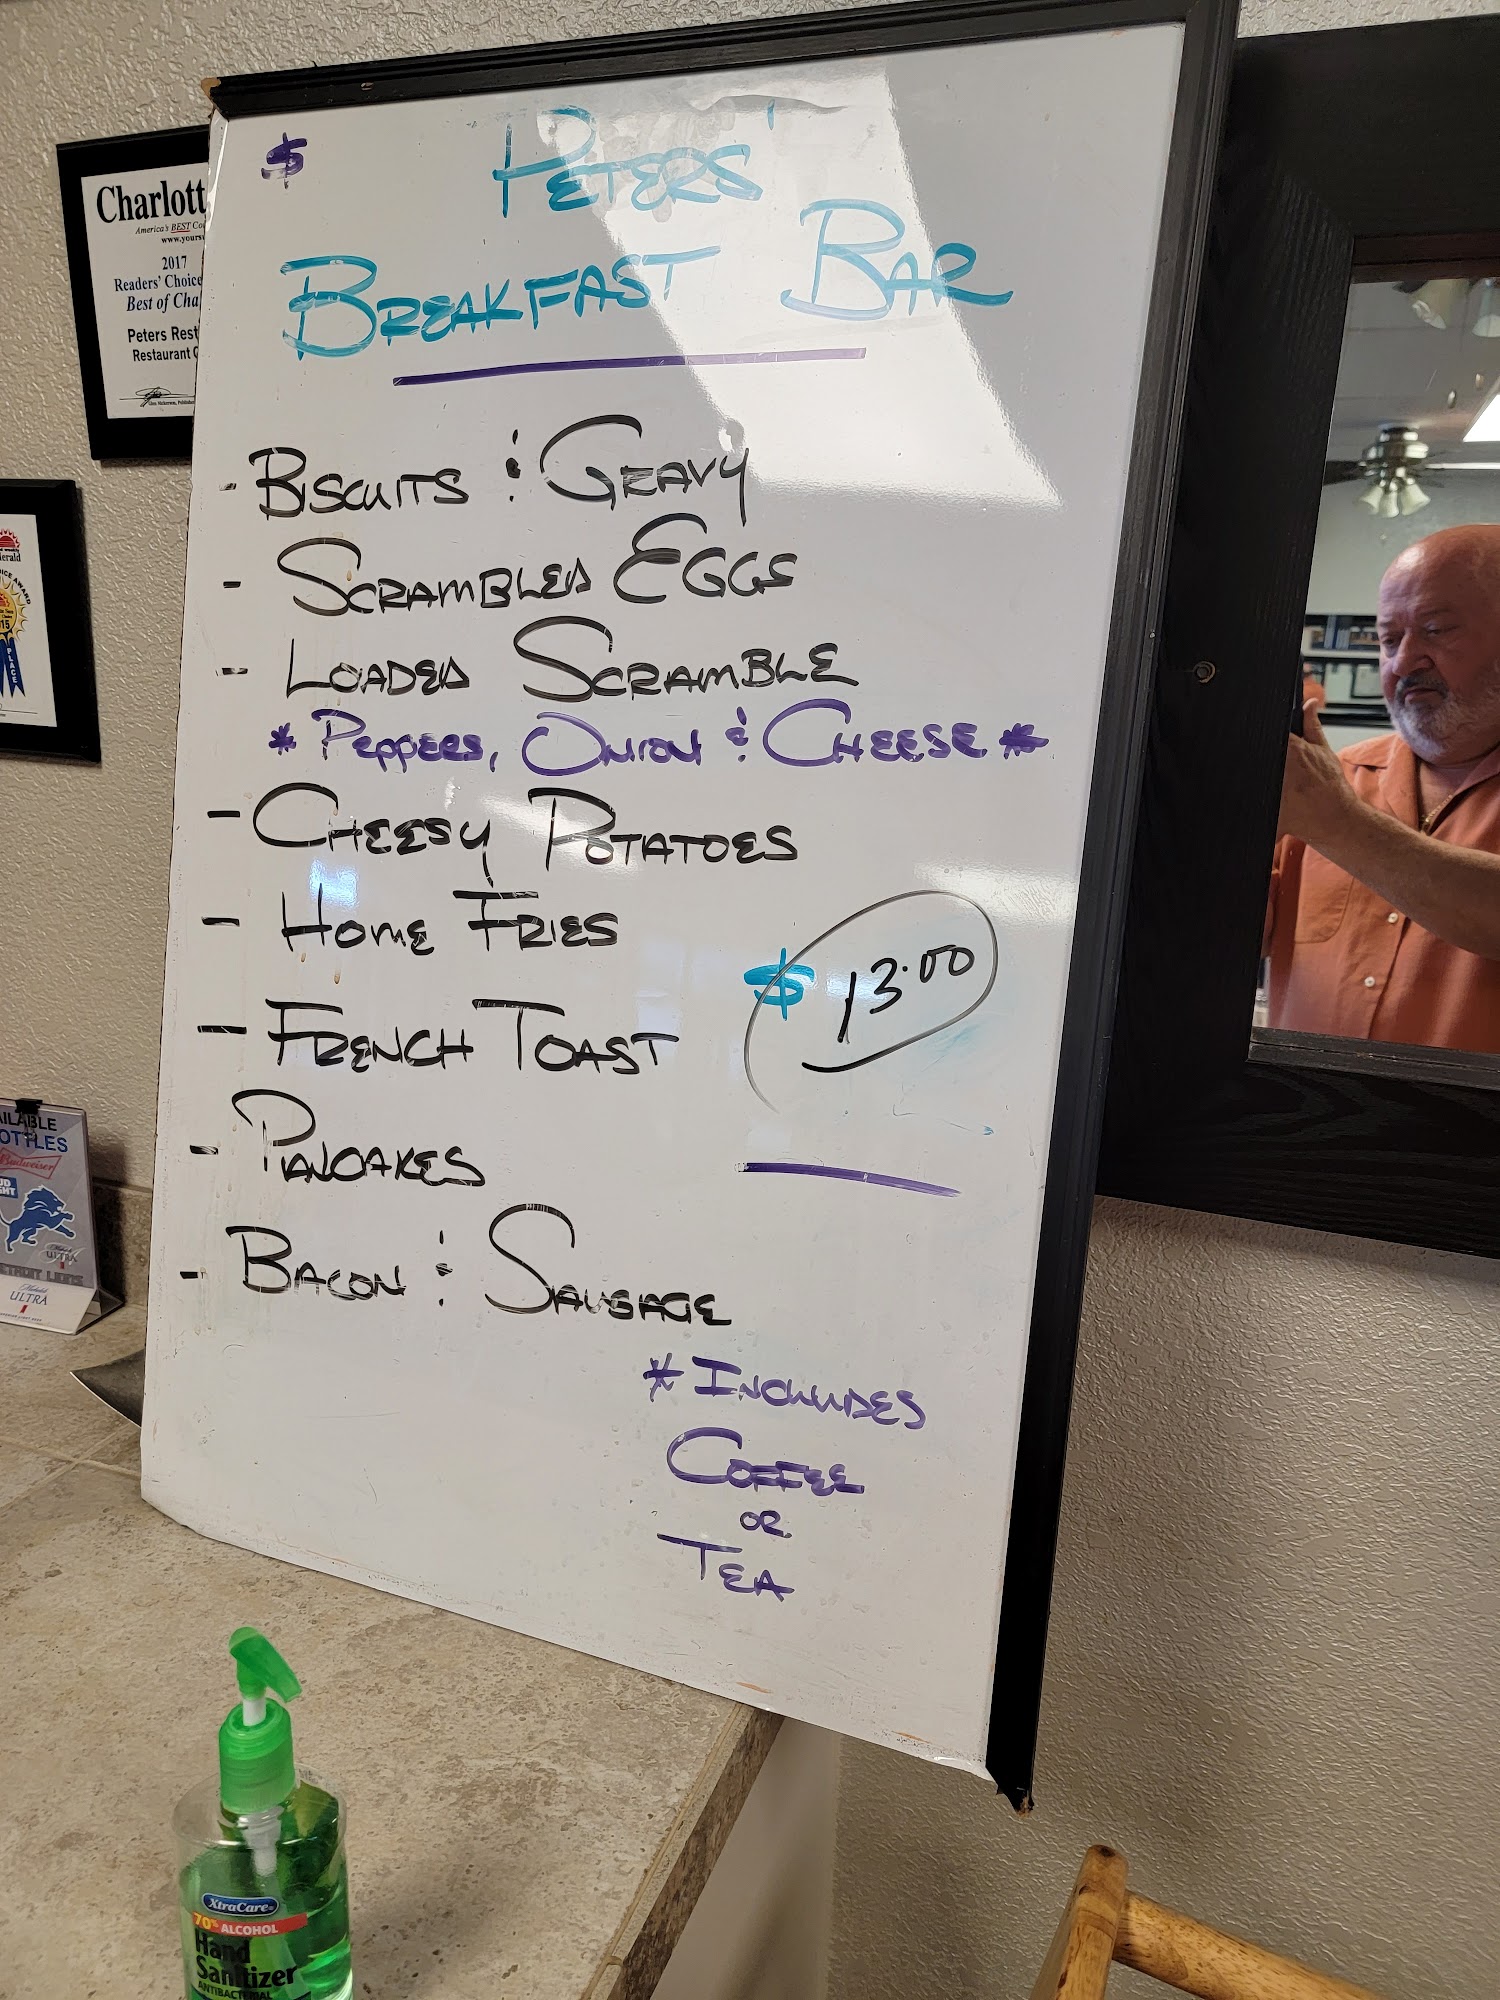 $ PETERS'
BREAKFAST BAR
- BISCUITS & GRAVY
- SCRAMBLED EGGS
- LOADED SCRAMBLE
* PEPPERS, ONION & CHEESE *
- CHEESY POTATOES
- HOME FRIES
$ 13.00
- FRENCH TOAST
- PANCAKES
- BACON & SAUSAGE
* INCLUDES
COFFEE
OR
TEA
Charlott
America's BEST Co
www.yours
2017
Readers' Choice
Best of Cha
Peters Rest
Restaurant
erald
15
PLACE
AILABLE
OTTLES
Budweiser
UD
GHT
ULTRA
ETROIT LIONS
Michelob
ULTRA
XtraCare
70% ALCOHOL
Hand
Sanitizer
ANTIBACTERIAL